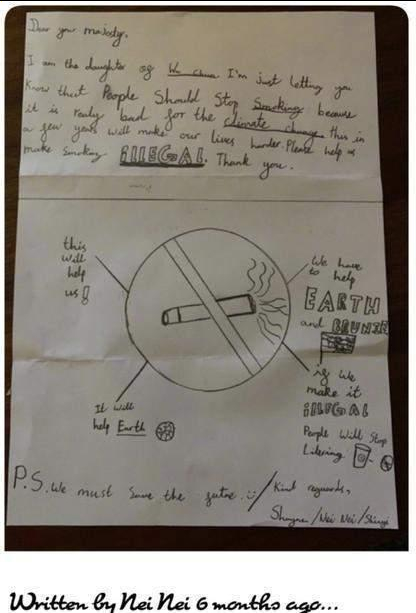 Dear your majesdy,
I am the daughter of Wu Chua I'm just letting you
know that People Should Stop Smoking because
it is realy bad for the climate change this in
a few years will make our lives harder. Please help us
make smoking iLLEGAL. Thank you.
this
will
help
us!
We have
to help
EARTH
and BRUNIE
if We
make it
iLLEGAL
People Will Stop
Litering
It will
help Earth
P.S. We must Save the futre :)
Kind reguards,
/ Nei Nei /
Written by Nei Nei 6 months ago...